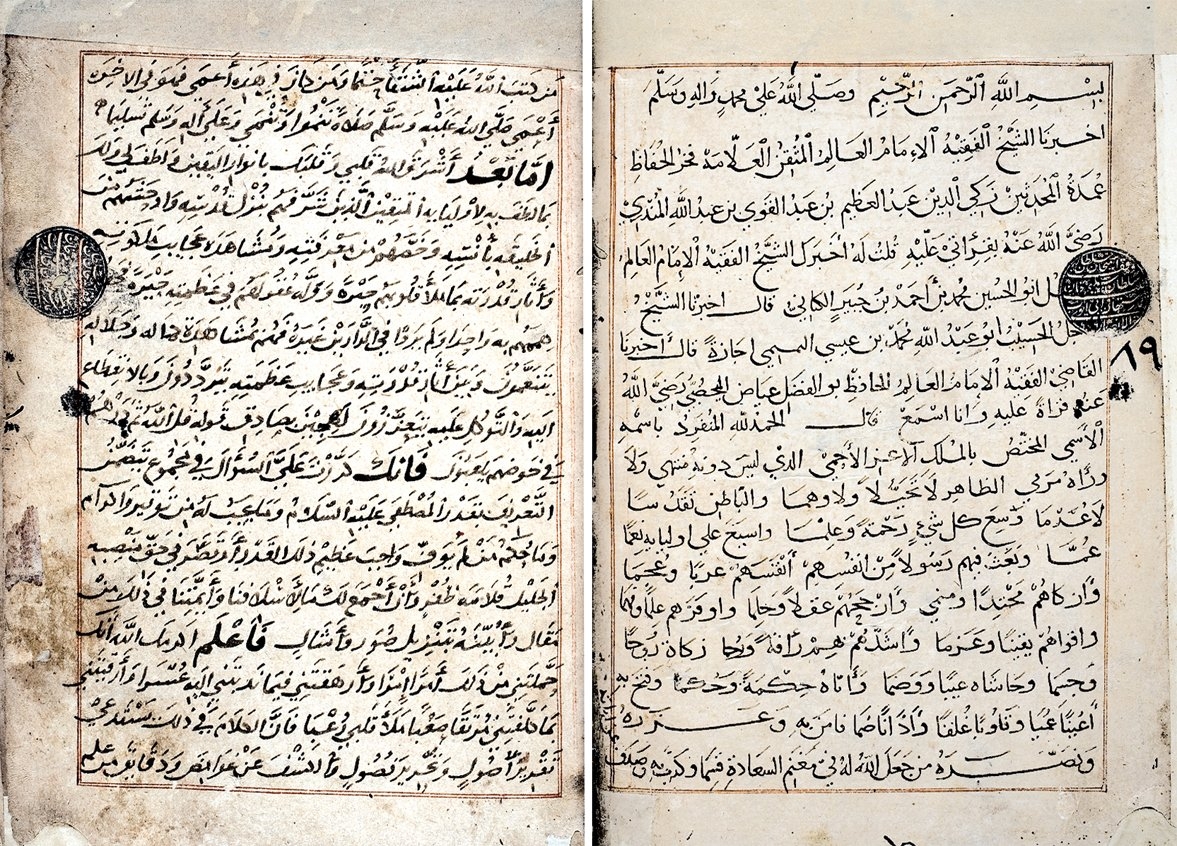 بسم الله الرحمن الرحيم وصلى الله على محمد واله وسلم
اخبرنا الشيخ الفقيه الامام العالم المتقن العلامة فخر الحفاظ
عمدة المحدثين زكي الدين عبد العظيم بن عبد القوي بن عبد الله المنذري
رضي الله عنه بقراتي عليه قلت له اخبرك الشيخ الفقيه الامام العالم
ابو الحسين محمد بن احمد بن جبير الكناني قال اخبرنا الشيخ
الحسيب ابو عبد الله محمد بن عيسى التميمي اجازة قال اخبرنا
القاضي الفقيه الامام العالم الحافظ بو الفضل عياض اليحصبي رضي الله
عنه قراة عليه وانا اسمع قال الحمد لله المنفرد باسمه
الاسمى المختص بالملك الاعز الاحمى الذي ليس دونه منتهى ولا
وراه مرمى الظاهر لا تخيلا ولا وهما والباطن تقدسا
لا عدما وسع كل شيء رحمة وعلما واسبغ على اوليايه نعما
عما وبعث فيهم رسولا من انفسهم انفسهم عربا وعجما
وازكاهم محتدا ومنمى وارجحهم عقلا وحلما واوفرهم علما وفهما
واقواهم يقينا وعزما واشدهم بهم رافة ورحما زكاه روحا
وجسما وحاشاه عيبا ووصما وأتاه حكمة وحكما وفتح به
أعينا عميا وقلوبا غلفا وأذانا صما فامن به وعزره
ونصره من جعل الله له في مغنم السعادة قسما وكذب به وصدف
١٩
من كتب الله عليه الشقأ حتما ومن كان في هذه أعمى فهو في الاخرة
أعمى صلى الله عليه وسلم صلاة تنمو وتنمى وعلى أله وسلم تسليما
اما بعد أشرق الله قلبي وقلبك بانوار اليقين ولطف لي ولك
بما لطف به لاوليايه المتقين الذين شرفهم بنزل قدسه واوحشهم من
الخليقة بأنسه وخصهم من معرفته ومشاهدة عجايب ملكوته
وأثار قدرته بما ملأ قلوبهم حبرة ووله عقولهم في عظمته حيرة
همهم به واحدا ولم يروا في الدارين غيره فهم بمشاهدة جماله وجلاله
يتنعمون وبين أثار قدرته وعجايب عظمته يترددون وبالانقطاع
اليه والتوكل عليه يتعززون لهجين بصادق قوله قل الله ثم ذرهم
في خوضهم يلعبون فانك كررت علي السؤال في مجموع يتضمن
التعريف بقدر المصطفى عليه السلام وما يجب له من توقير واكرام
وما حكم من لم يوف واجب عظيم ذلك القدر أو قصر في حق منصبه
الجليل قلامة ظفر وأن أجمع لك ما لأسلافنا وأيمتنا في ذلك من
مقال وأبينه بتنزيل صور وأمثال فاعلم اكرمك الله أنك
حملتني من ذلك أمرا إمرا وأرهقتني فيما ندبتني اليه عسرا وأرقيتني
بما كلفتني مرتقا صعبا ملأ قلبي رعبا فان الكلام في ذلك يستدعي
تقرير أصول وتحرير فصول والكشف عن غوامض ودقايق من علم